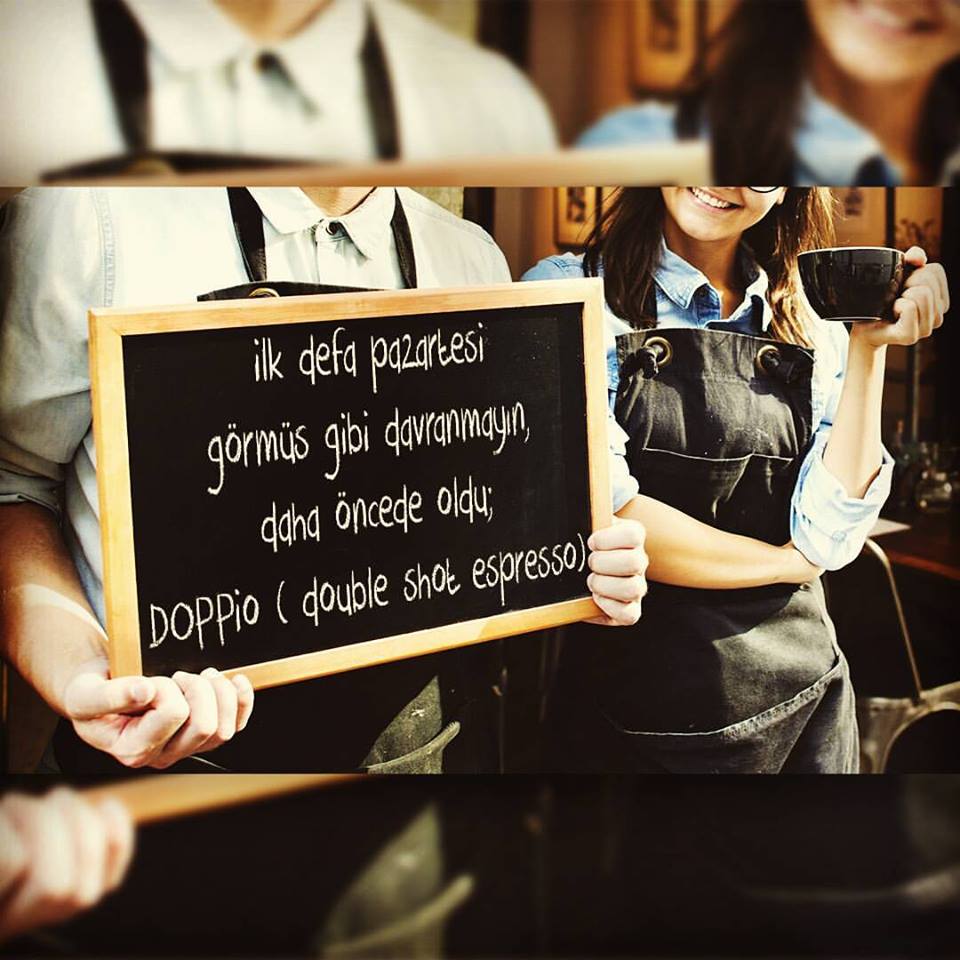 ilk defa pazartesi
görmüs gibi davranmayın,
daha öncede oldu;
DOPPiO ( double shot espresso)